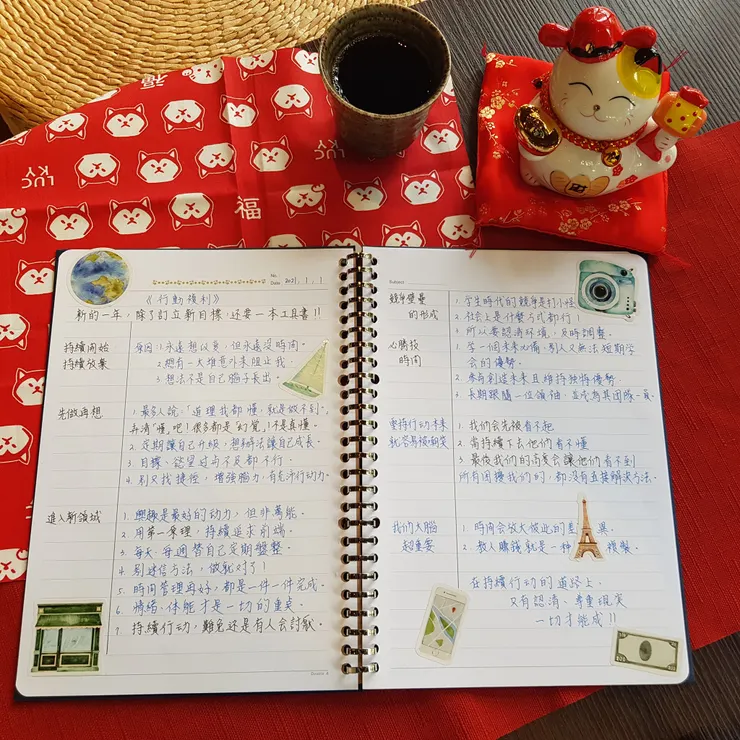 福
LUCKY
福
No.
Date 2021. 1. 1
《行動複利》
新的一年，除了訂立新目標，还要一本工具書!!
持續開始
持續放棄
原因 1. 永遠想，但永遠沒時間。
2. 總有一大堆意外來阻止我。
3. 想法不是自己腦子長出。
先做再想
1. 最多人說「道理我都懂，就是做不到」，
弄清「懂」吧！很多都是「幻覺」，不是真懂。
2. 定期讓自己升級，想辦法讓自己成長。
3. 目標、欲望过与不及都不行。
4. 別又找捷徑，增強腦力，有充沛行动力。
進入新領域
1. 興趣是最好的动力，但非萬能。
2. 用第一原理，持續追求前端。
3. 每天、每週替自己定期盤整。
4. 別迷信方法，做就对了！
5. 時間管理再好，都是一件一件完成。
6. 情緒、体能才是一切的重点。
7. 持續行动，難免还是有人会討厭。
Subject
競爭壁壘
的形成
1. 学生時代的競爭是打小怪
2. 社会上是什麼方式都行！
3. 所以要認清环境，及時調整。
必勝技
時間
1. 学一個未來必備，別人又無法短期学
会的優勢。
2. 參与創造未來且維持独特優勢。
3. 長期跟隨一位領袖，並成為其团隊一員。
堅持行动本來
就容易被嘲笑
1. 我們会先被看不起
2. 當持續下去他們看不懂
3. 最後我們的高度会讓他們看不到
所有困擾我們的，都沒有直接解決方法。
我們大腦
超重要
1. 時间会放大彼此的差異
2. 教人賺錢就是一种複製。
在持續行动的道路上，
又有認清、尊重現实
一切才能成!!